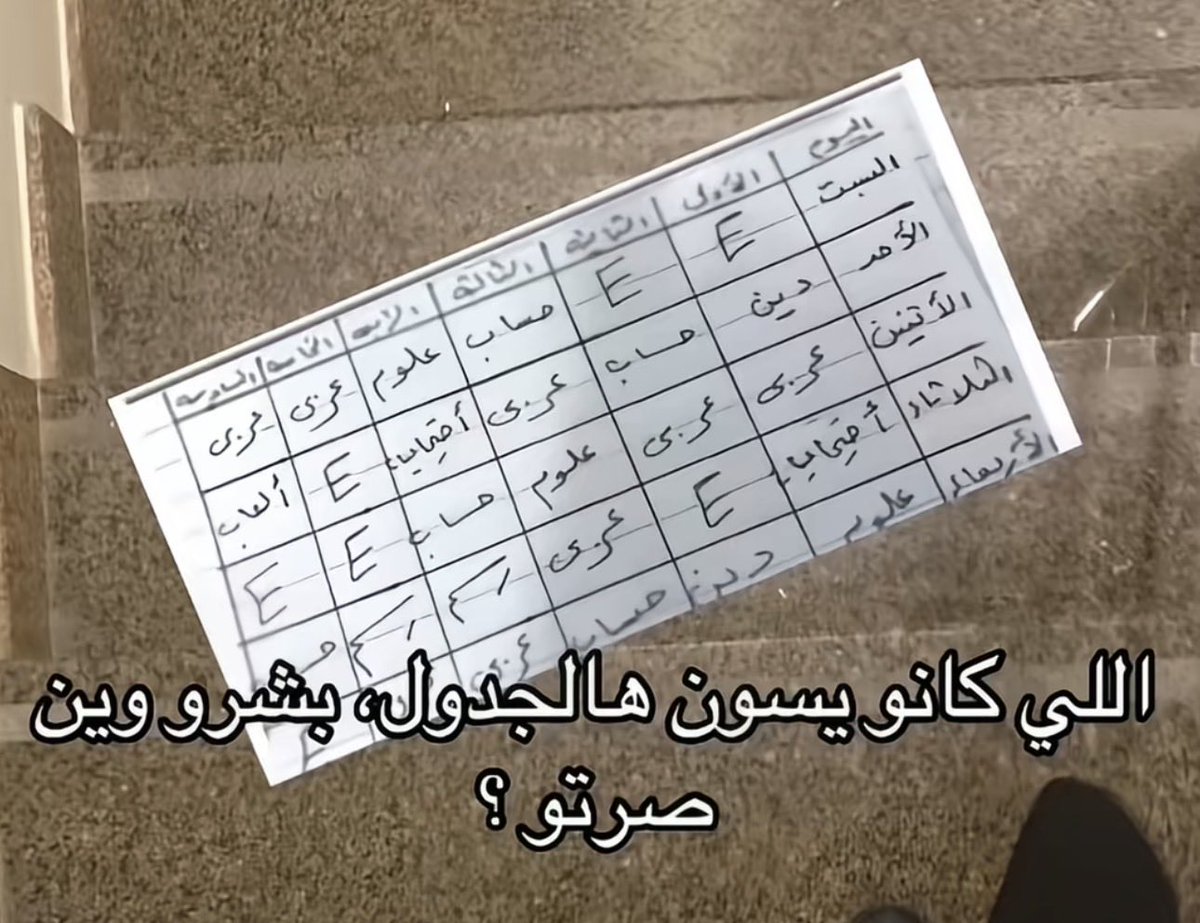 اليوم الأولى الثانية الثالثة الرابعة الخامسة السادسة
السبت E E حساب علوم عربى عربى
الأحد دين حساب عربى أجتماعيات E ألعاب
الأتنين عربى عربى علوم حساب E E
الثلاثاء أجتماعيات E عربى
الأربعاء علوم دين حساب عربى
اللي كانو يسون هالجدول، بشرو وين
صرتو ؟